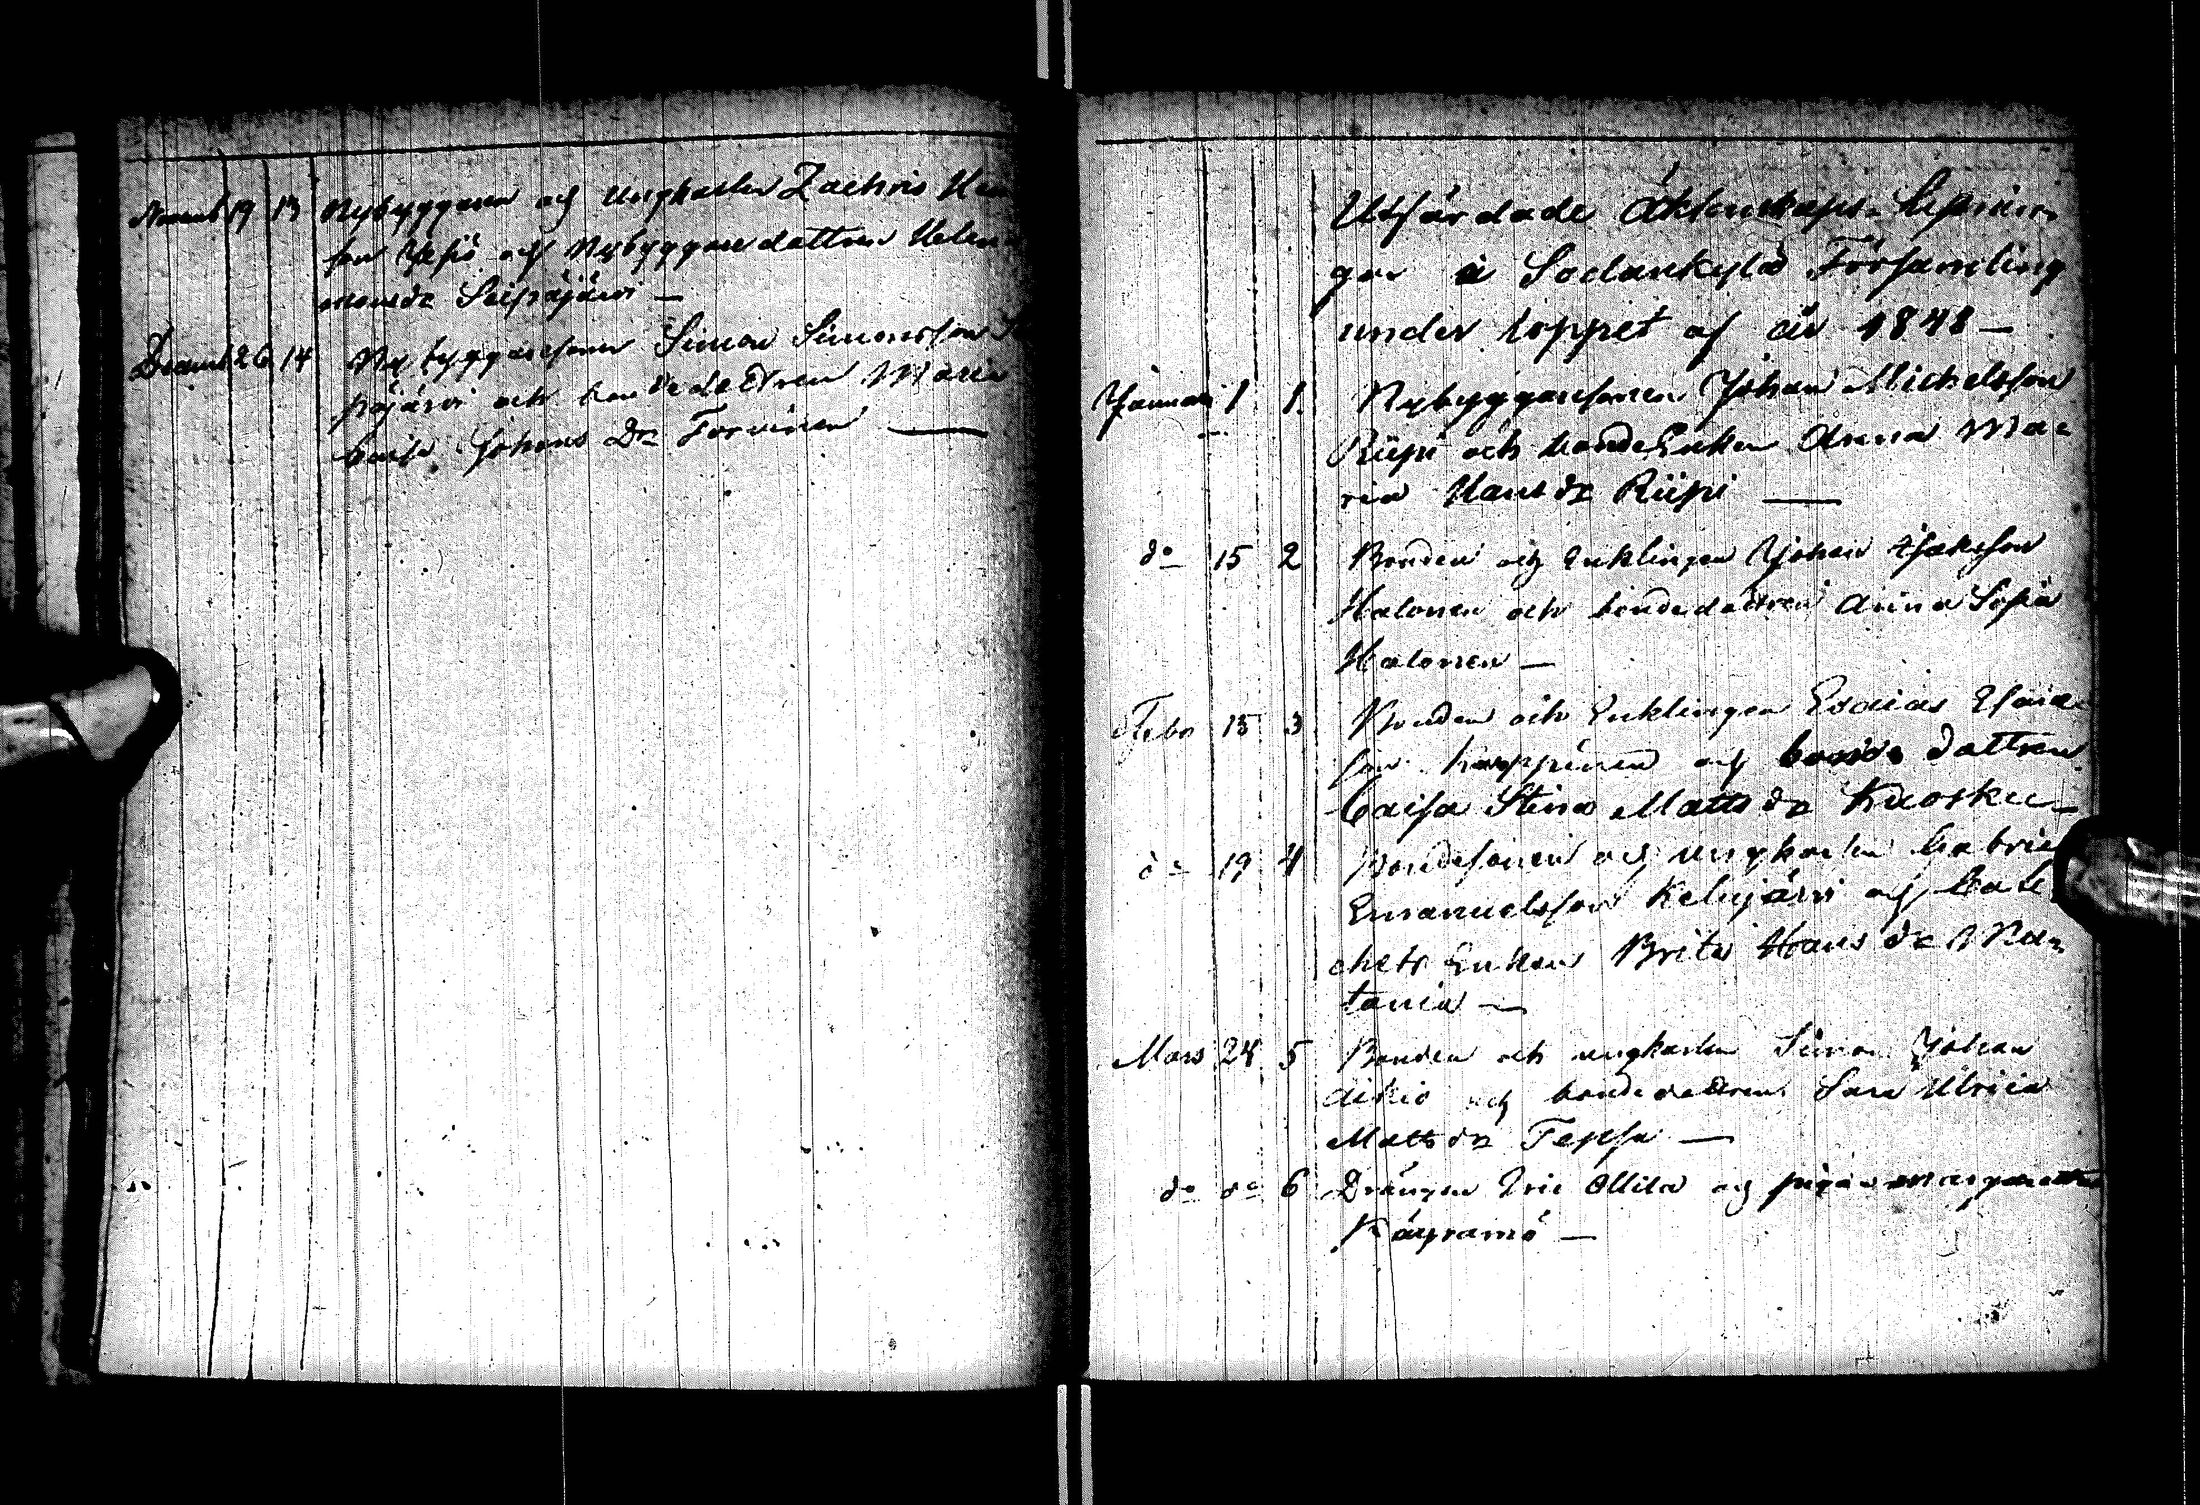 Novemb 19 13 Nybyggaren och Ungkarlen Zachris
son och Nybyggaredattren Helena
Monsdr Seipäjärvi —
Decemb 26 14 Nybyggaresonen Simon Simonsson
päjärvi och bondedottren Maria
Caisa Johans Dr Torvinen —
Utfärdade Äktenskaps- Lysnin-
gar i Sodankylä Församling
under loppet af år 1848 —
Januari 1 1. Nybyggaresonen Johan Michelsson
Riipi och bonde Enkan Anna Ma-
ria Hansdr Riipi —
do 15 2 Bonden och Enklingen Johan Isaksson
Halonen och bondedottren Anna Sofia
Halonen —
Febr 15 3 Bonden och Enklingen Esaias Esaia-
son och bonde dottren
Caisa Stina Mattsdr Kuosku —
do 19 4 Bondesonen och ungkarlen Gabriel
Emanuelsson Kelujärvi och
Enkan Brita Hansdr Ma-
tania —
Mars 24 5 Bonden och ungkarlen Simon Johan
Aikio och bondedottren Sara Ulrica
Mattsdr Tepsa —
do do 6 Drängen Eric Ollila och pigan Margareta
Käyrämö —